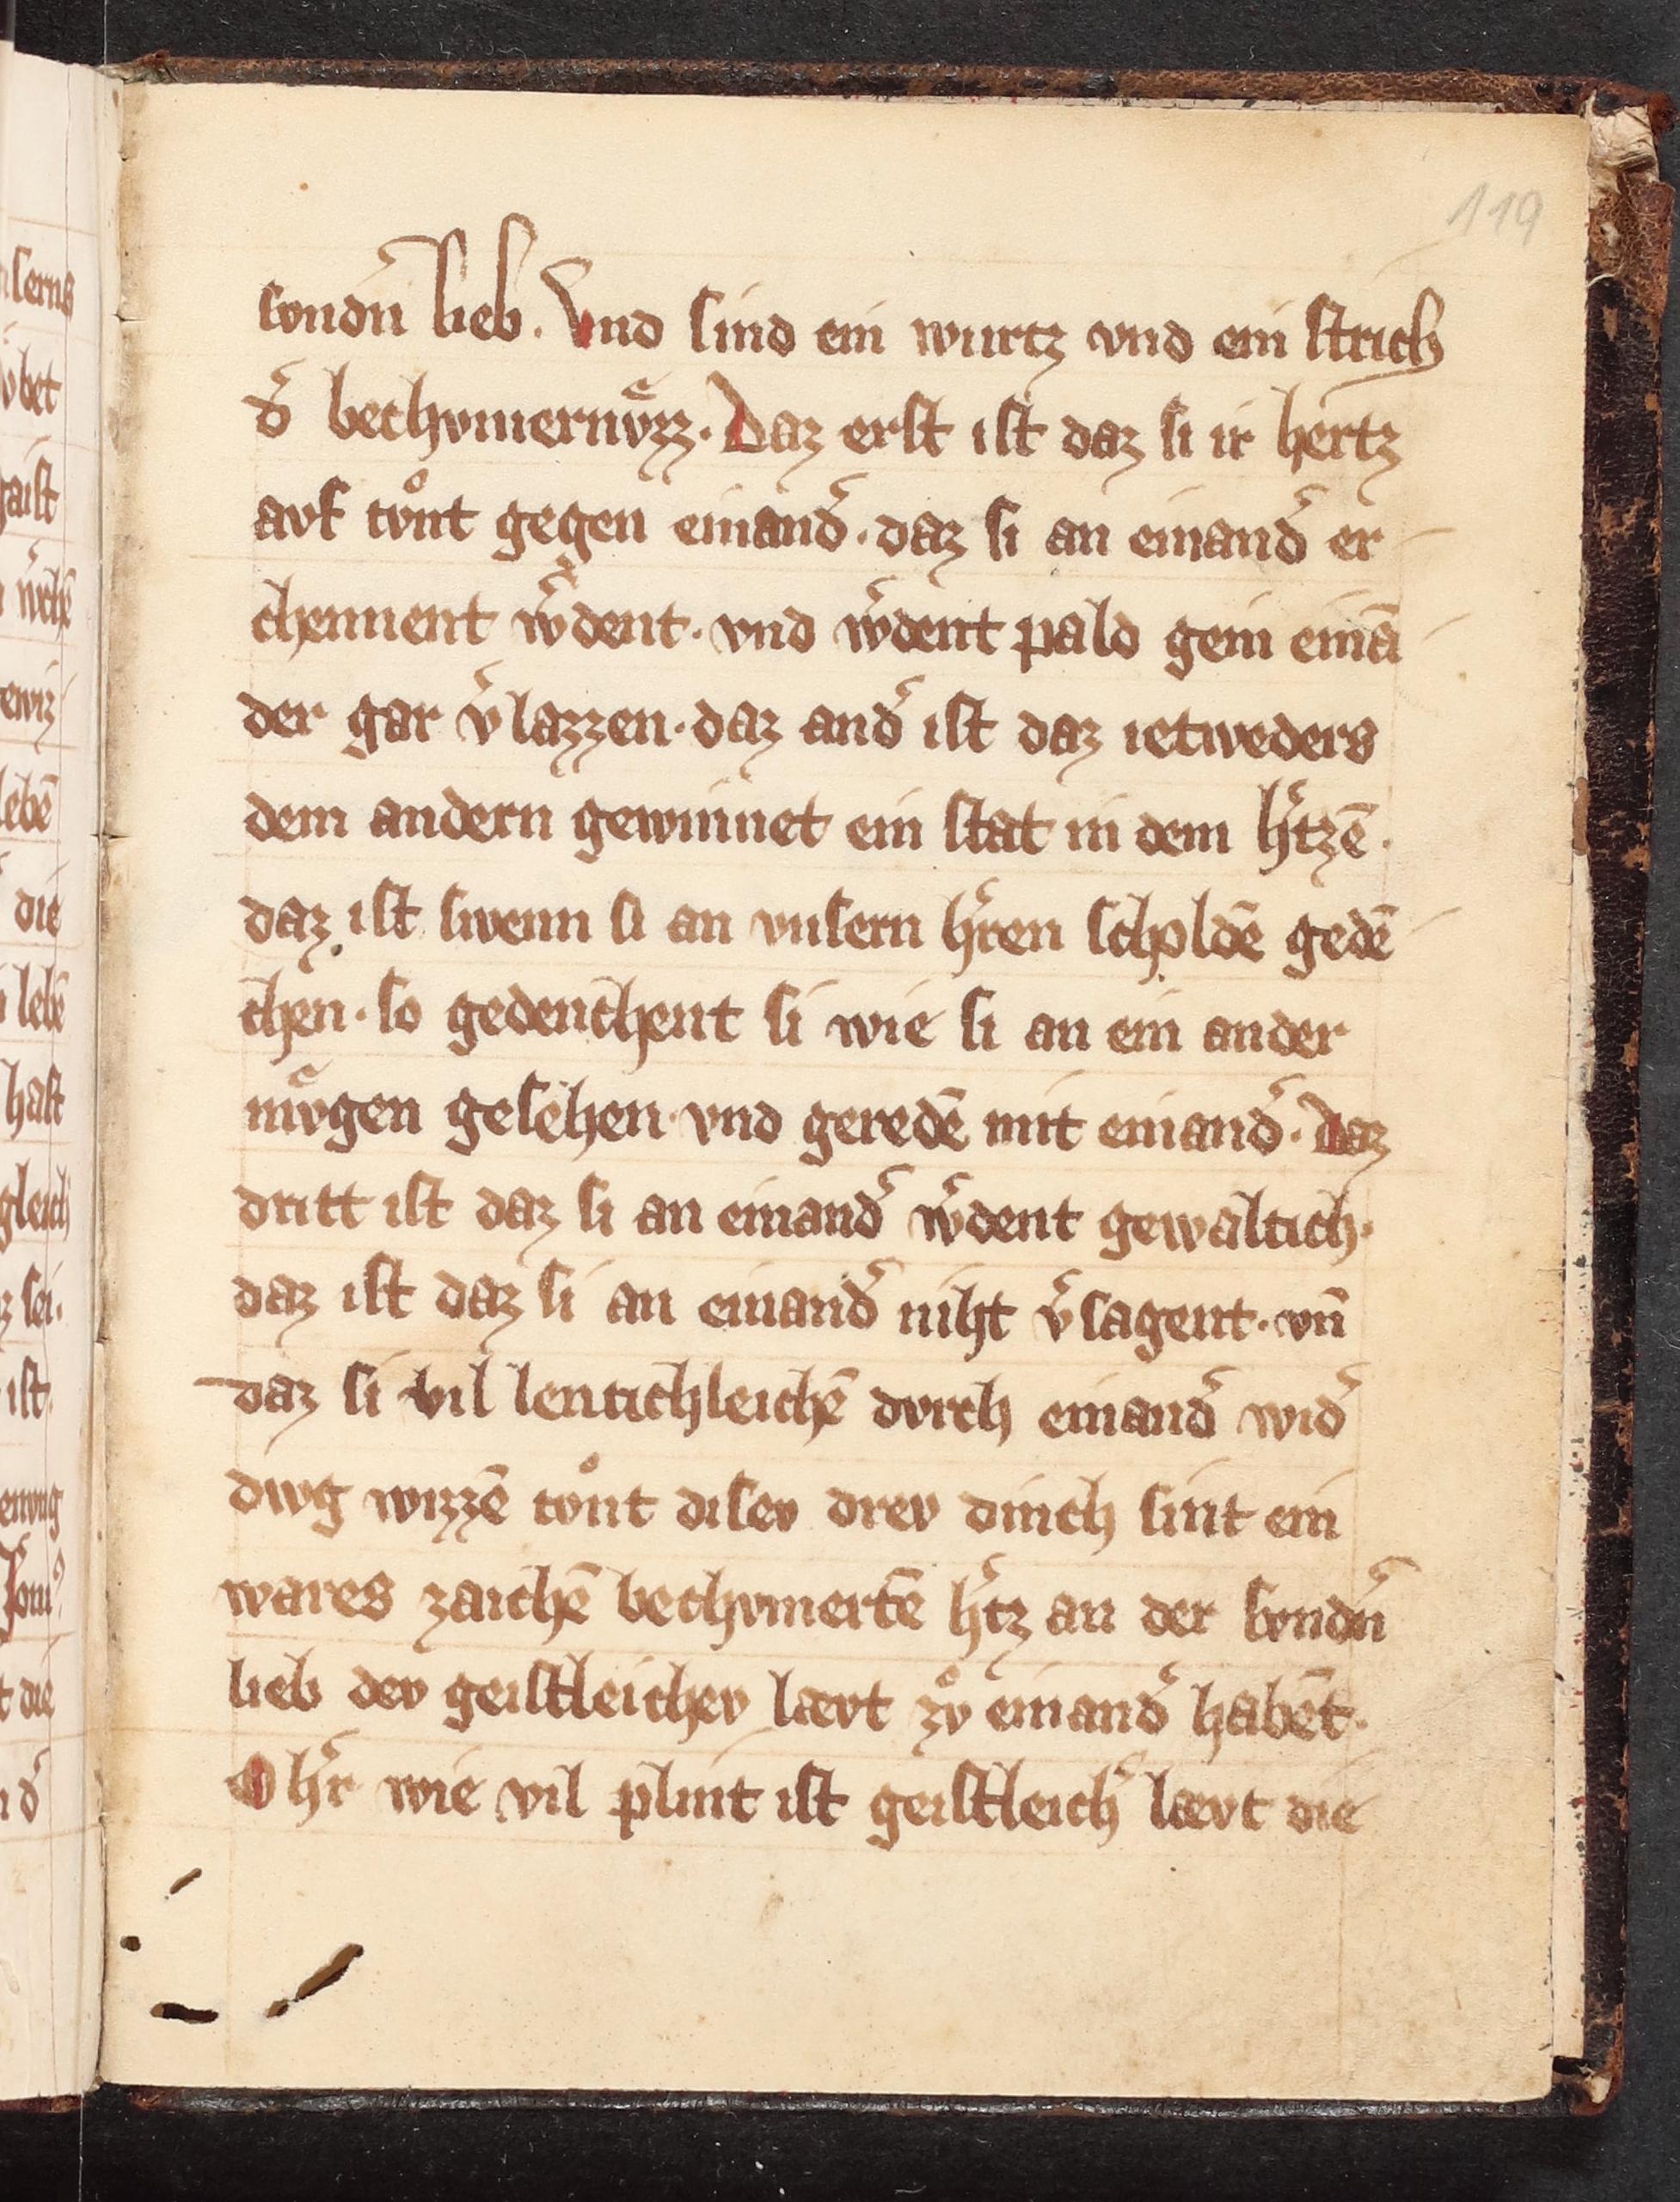 119
ſvndn̄ lieb. Vnd ſind ein wurtz vnd ein ſtrich
d̓ bechvmernv̈zz. Daz erſt iſt daz ſi ir hertz
avf tvͦnt gegen einand̓. daz ſi an einand̓ er
chennent w̓dent. vnd w̓dent pald gein einā
der gar v̓lazzen. daz and̓ iſt daz ietweders
dem andern gewinnet ein ſtat in dem h̓tzē.
daz iſt ſwenn ſi an vnſern h̓ren ſcholdē gedē
chen. ſo gedenchent ſi wie ſi an ein ander
mvͤgen geſehen. vnd geredē mit einand̓. Daz
dritt iſt daz ſi an einand̓ w̓dent gewaltich.
daz iſt daz ſi an einand̓ niht v̓ſagent. vn̄
daz ſi vil lentichleichē dvrch einand̓ wid̓
dwg wizzē tvͦnt diſev drev dinch ſint ein
wares zaichē bechvmertē h̓tz an der ſvndn̄
lieb dev geiſtleichev lævt zvͦ einand̓ habēt.
O h̓r wie vil plint iſt geiſtleich̓ lævt die